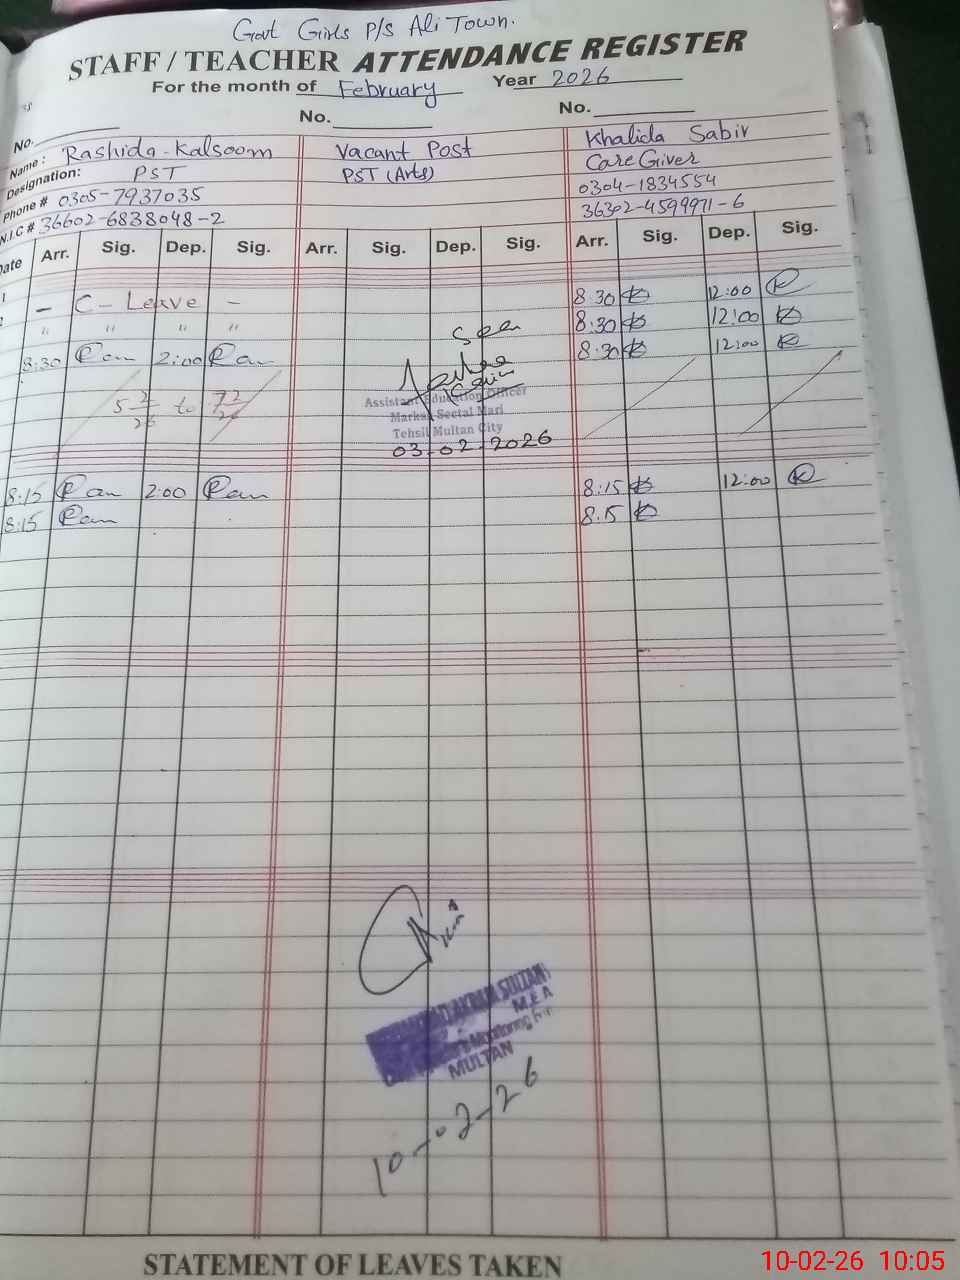 Govt Girls P/S Ali Town.
STAFF / TEACHER ATTENDANCE REGISTER
For the month of February Year 2026
No. No. No.
Name: Rashida Kalsoom Vacant Post Khalida Sabir
Designation: PST PST (Arts) Care Giver
Phone # 0305-7937035 0304-1834554
N.I.C # 36602-6838048-2 36302-4599971-6
Date Arr. Sig. Dep. Sig. Arr. Sig. Dep. Sig. Arr. Sig. Dep. Sig.
1 - C-Leave - 8:30 12:00
2 " " " " 8:30 12:00
8:30 2:00 8:30 12:00
Seen
5 2/26 to 7 2/26
Assistant Education Officer
Markaz Sectal Mari
Tehsil Multan City
03-02-2026
8:15 2:00 8:15 12:00
8:15 8:15
AKRAM SULTAN
M.E.A
Monitoring
MULTAN
10-02-26
STATEMENT OF LEAVES TAKEN
10-02-26 10:05